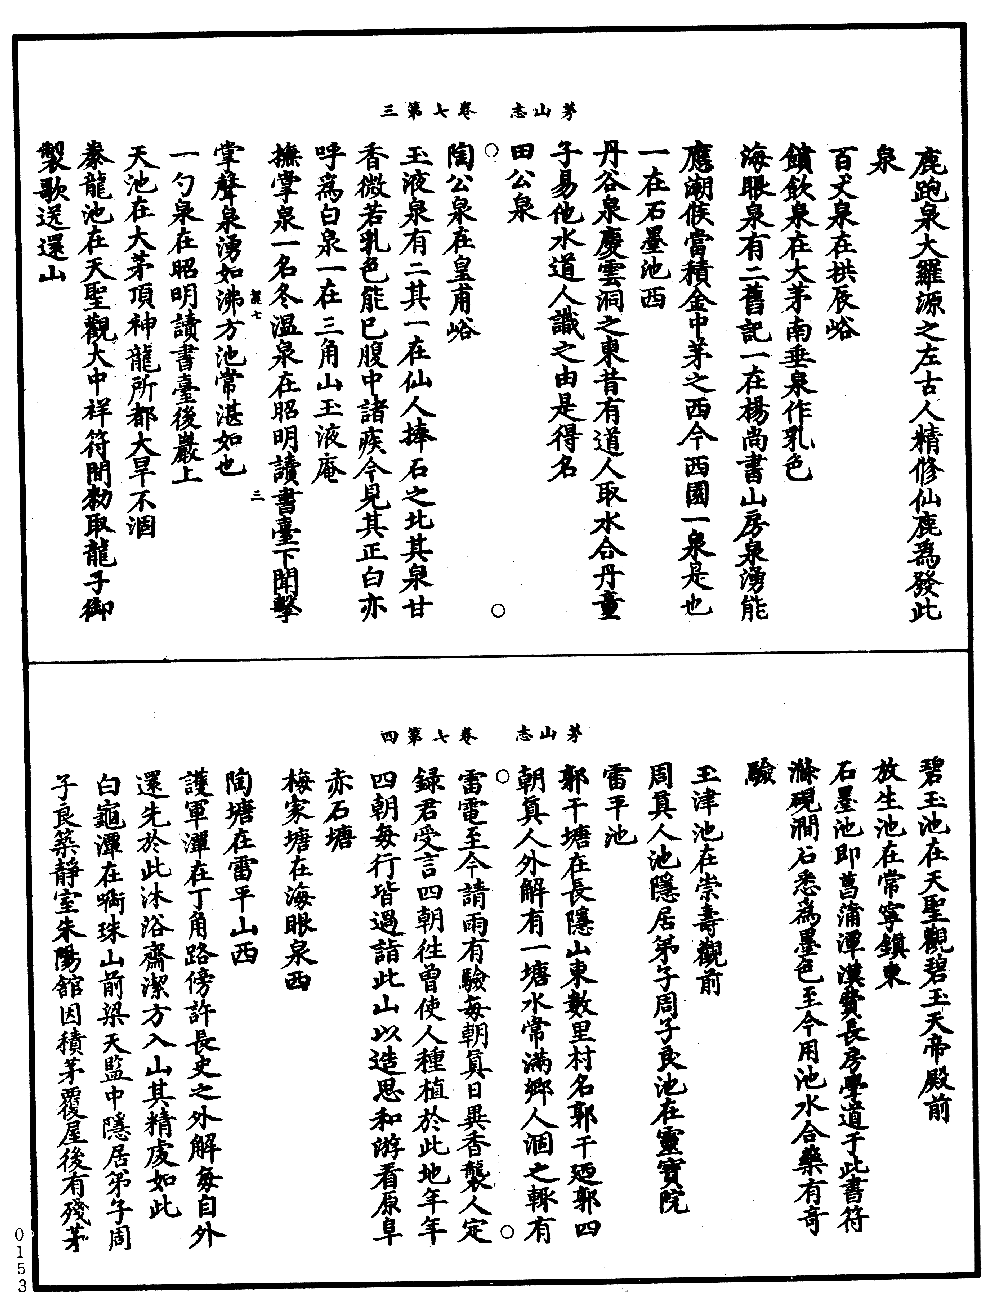 茅山志　卷七第三
鹿跑泉大羅源之左古人精修仙鹿爲發此
泉
百丈泉在拱辰峪
鎮飲泉在大茅南垂泉作乳色
海眼泉有二舊記一在楊尚書山房泉湧能
應潮候當積金中茅之西今西園一泉是也
一在石墨池西
丹谷泉慶雲洞之東昔有道人取水合丹童
子易他水道人識之由是得名
田公泉
陶公泉在皇甫峪
玉液泉有二其一在仙人捧石之北其泉甘
香微若乳色能已腹中諸疾今見其正白亦
呼爲白泉一在三角山玉液庵
撫掌泉一名冬溫泉在昭明讀書臺下聞擊
掌聲泉湧如沸方池常湛如也
一勺泉在昭明讀書臺後巖上
天池在大茅頂神龍所都大旱不涸
豢龍池在天聖觀大中祥符間勑取龍子御
製歌送還山
三
茅山志　卷七第四
碧玉池在天聖觀碧玉天帝殿前
放生池在常寧鎮東
石墨池即菖蒲潭漢費長房學道于此書符
滌硯澗石悉爲墨色至今用池水合藥有奇
驗
玉津池在崇壽觀前
周真人池隱居弟子周子良池在靈寶院
雷平池
郭干塘在長隱山東數里村名郭干廼郭四
朝眞人外解有一塘水常滿鄉人涸之輙有
雷電至今請雨有驗每朝眞日異香襲人定
録君受言四朝往曾使人種植於此地年年
四朝每行皆過詣此山以造思和游看原阜
赤石塘
梅家塘在海眼泉西
陶塘在雷平山西
護軍潭在丁角路傍許長史之外解每自外
還先於此沐浴齋潔方入山其精虔如此
白龜潭在㘅珠山前梁天監中隱居弟子周
子良築靜室朱陽舘因積茅覆屋後有殘茅
0153